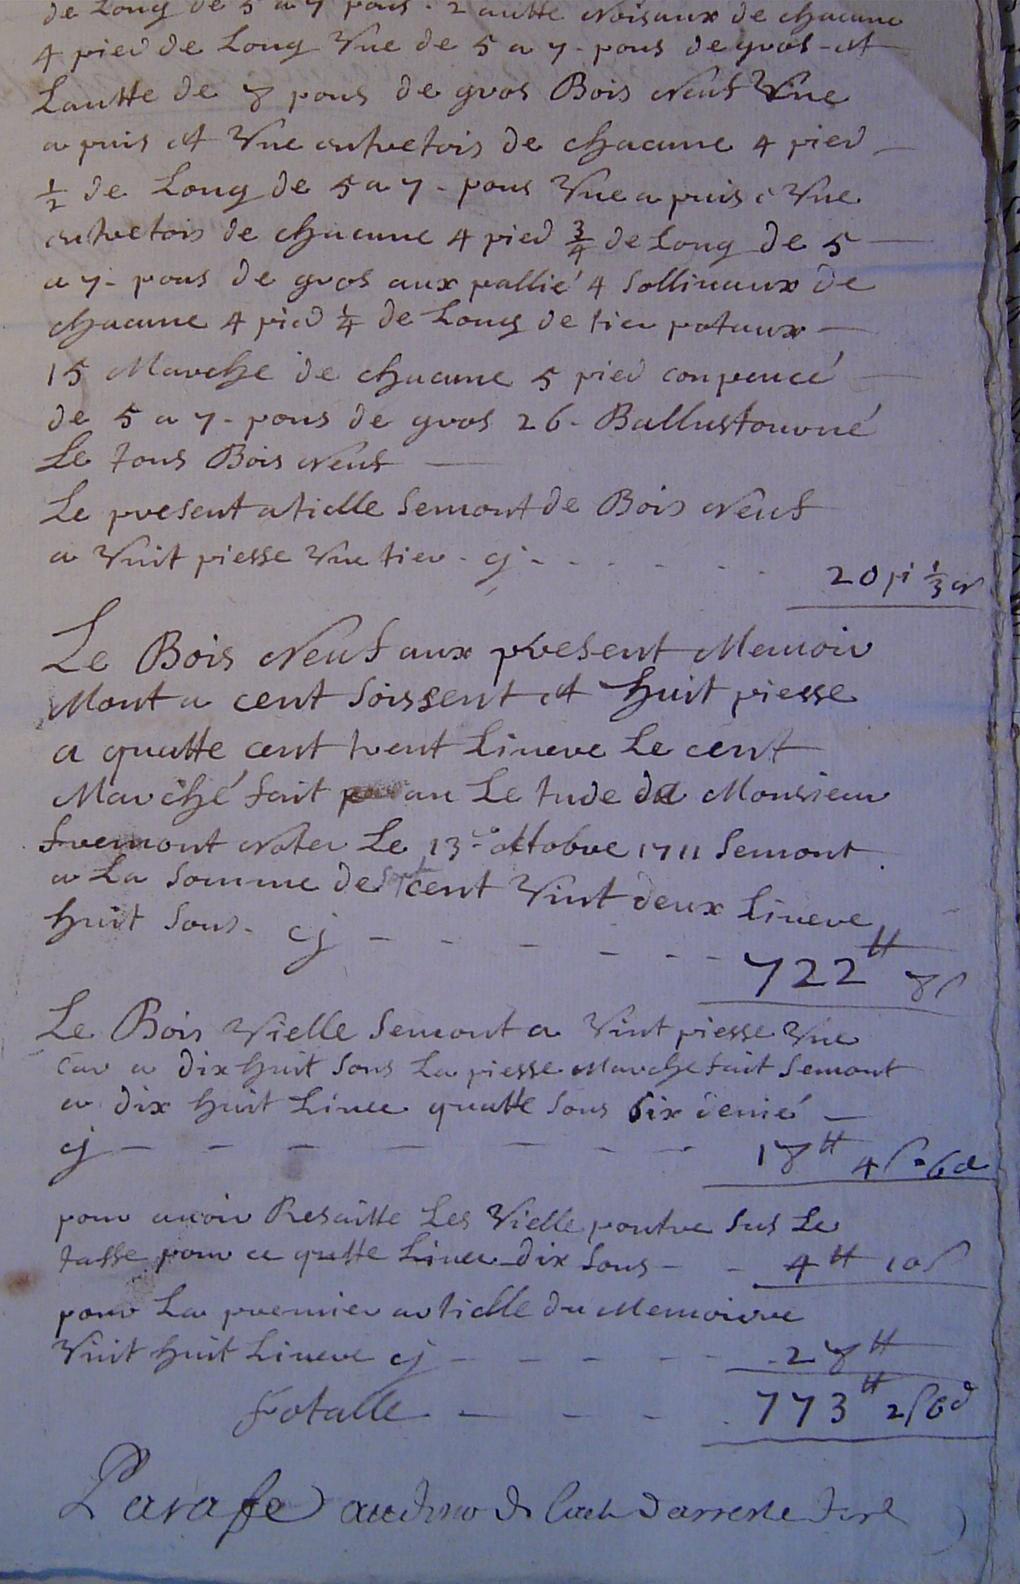 de Long de 5 a 7 pous . 2 autte Croisaux de chacune
4 pied de Long Vne de 5 a 7 - pous de gros - et
Lautte de 8 pous de gros Bois Neuf Vne
a puis et Vne entretois de chacune 4 pied
1/2 de Long de 5 a 7 - pous Vne a puis e Vne
entretois de chacune 4 pied 3/4 de Long de 5
a 7 - pous de gros aux pallié 4 Sollivaux de
chacune 4 pied 1/4 de Long de tier potaux
15 Marche de chacune 5 pied conpencé
de 5 a 7 - pous de gros 26 - Ballustourné
Le tous Bois Neuf
Le present atielle Semont de Bois Neuf
a Vint piesse Vne tier - cy - 20 pi 1/3
Le Bois Neuf aux present Memoir
Mont a cent Soissent et huit piesse
a quatte cent trent Livere Le cent
Marché fait an Le tude de Monsieur
fremont Noter Le 13 - octobre 1711 Semont
a La Somme de Sept cent Vint deux Livere
huit Sous - cy - 722 ₶ 8 s
Le Bois Vielle Semont a Vint piesse Vne
car a dix huit Sous La piesse Marche fait Semont
a dix huit Livee quatte Sous Six denié
cy - 18 ₶ 4 s 6 d
pour avoir Resaitte Les Vielle poutre Sus Le
tasse pour ce qutte Livee dix Sous - 4 ₶ 10 s
pour La premier artielle du Memoirre
Vint huit Livere cy - 28 ₶
Totalle - 773 ₶ 2 s 6 d
Parafe au de